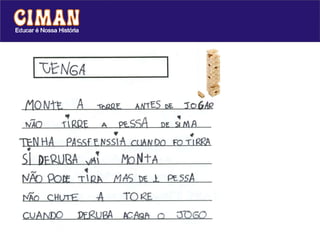 CIMAN
Educar é Nossa História
JENGA
MONTE A TORRE ANTES DE JOGAR
NÃO TIRRE A PESSA DE SIMA
TENHA PASSFENSSIA CUANDO FO TIRRA
SI DERUBA VAI MONTA
NÃO PODE TIRA MAS DE 1 PESSA
NÃO CHUTE A TORE
CUANDO DERUBA ACABA O JOGO